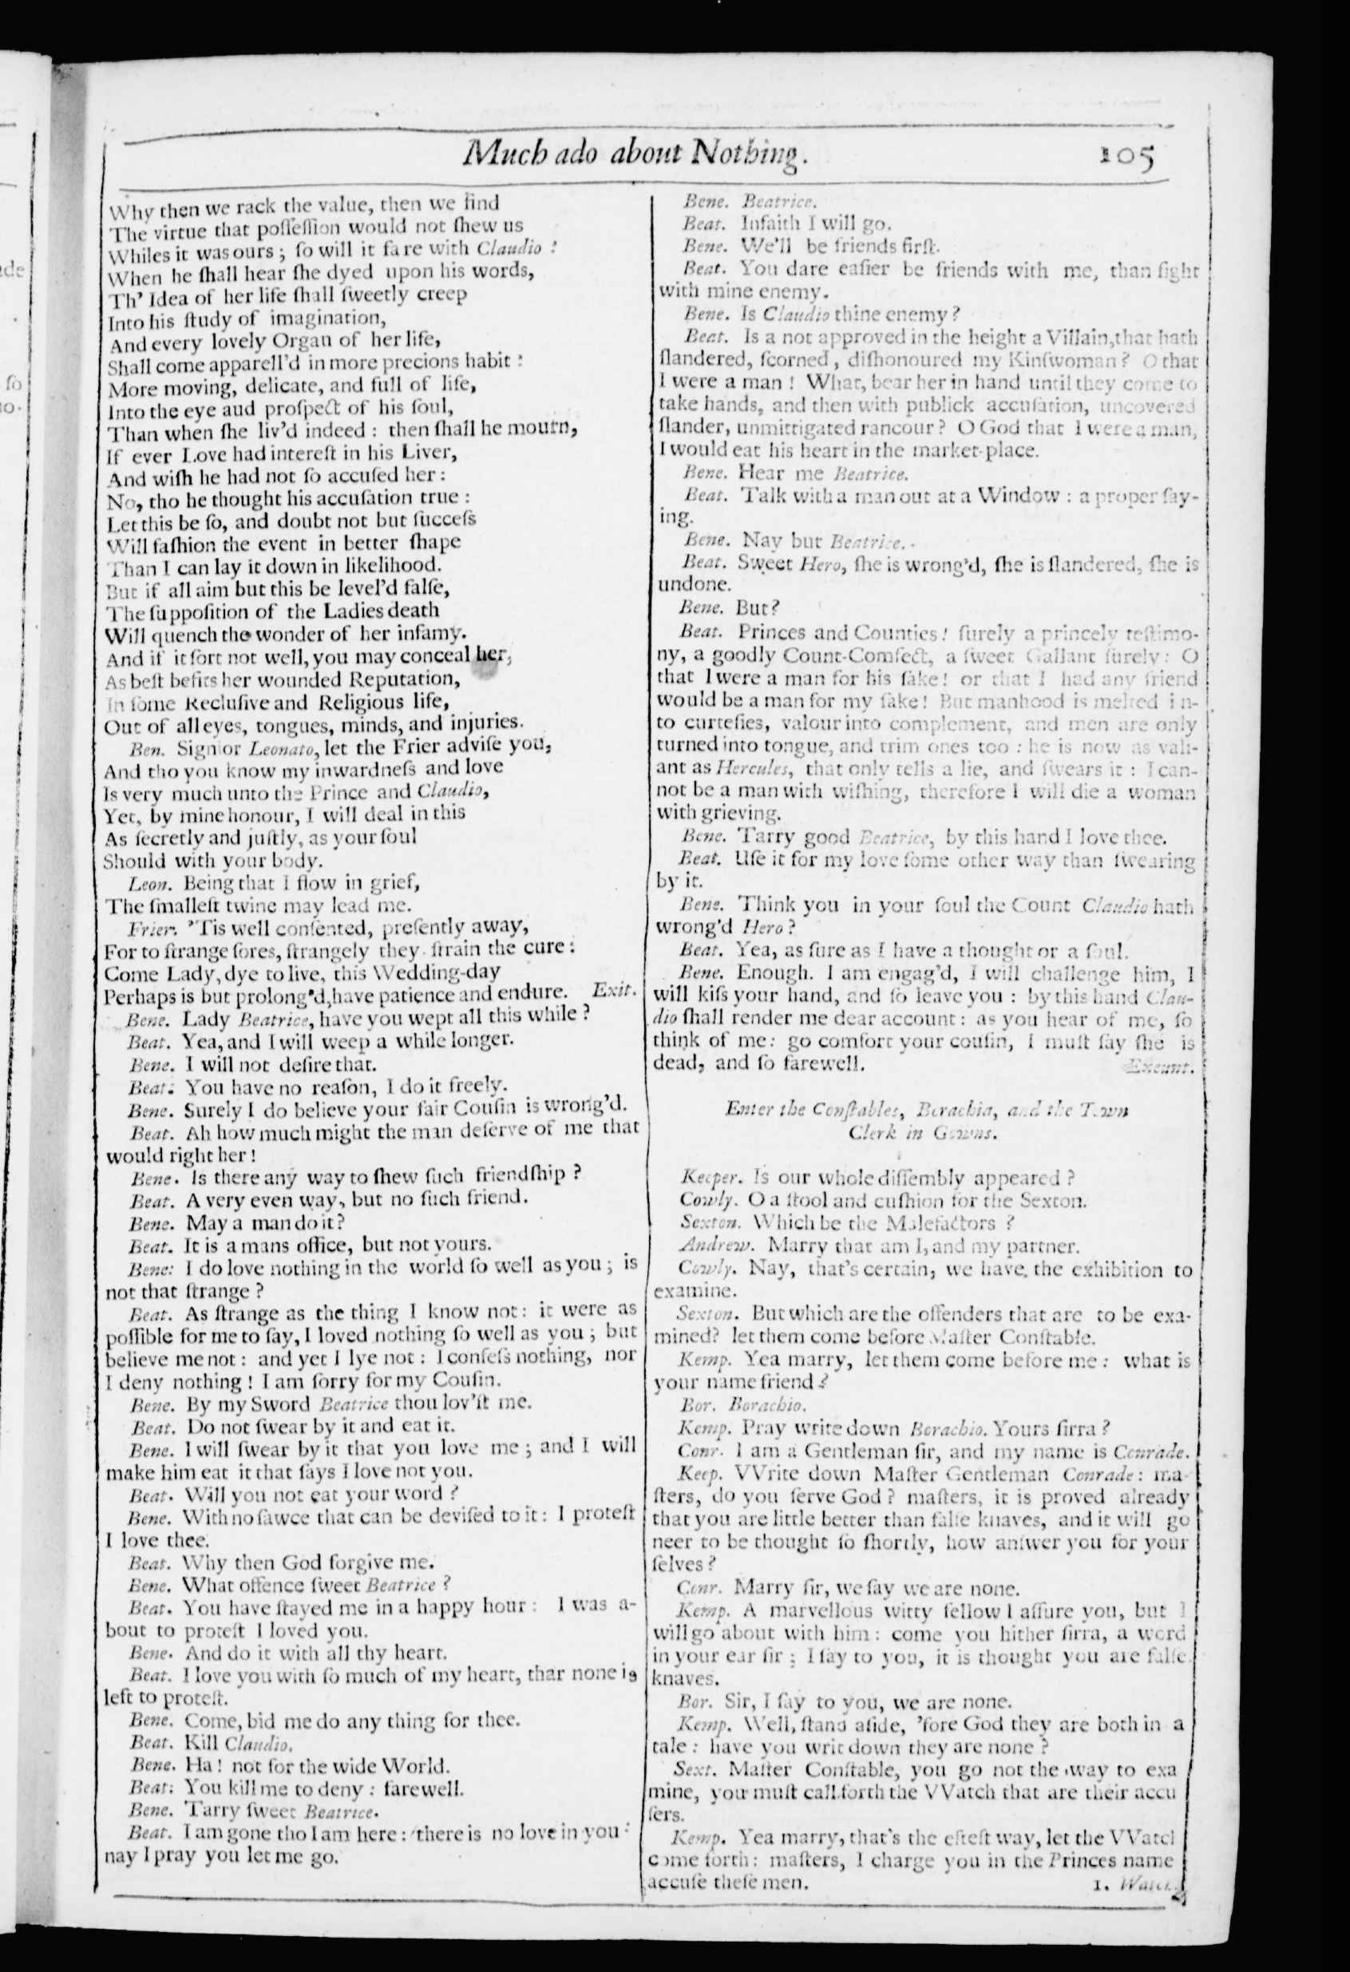 Much ado about Nothing. 105
Why then we rack the value, then we find
The virtue that poſſeſſion would not ſhew us
Whiles it was ours; ſo will it fare with Claudio:
When he ſhall hear ſhe dyed upon his words,
Th' Idea of her life ſhall ſweetly creep
Into his ſtudy of imagination,
And every lovely Organ of her life,
Shall come apparell'd in more precions habit:
More moving, delicate, and full of life,
Into the eye aud proſpect of his ſoul,
Than when ſhe liv'd indeed: then ſhall he mourn,
If ever Love had intereſt in his Liver,
And wiſh he had not ſo accuſed her:
No, tho he thought his accuſation true:
Let this be ſo, and doubt not but ſucceſs
Will faſhion the event in better ſhape
Than I can lay it down in likelihood.
But if all aim but this be level'd falſe,
The ſuppoſition of the Ladies death
Will quench the wonder of her infamy.
And if it ſort not well, you may conceal her,
As beſt befits her wounded Reputation,
In ſome Recluſive and Religious life,
Out of all eyes, tongues, minds, and injuries.
Ben. Signior Leonato, let the Frier adviſe you,
And tho you know my inwardneſs and love
Is very much unto the Prince and Claudio,
Yet, by mine honour, I will deal in this
As ſecretly and juſtly, as your ſoul
Should with your body.
Leon. Being that I flow in grief,
The ſmalleſt twine may lead me.
Frier. 'Tis well conſented, preſently away,
For to ſtrange ſores, ſtrangely they ſtrain the cure:
Come Lady, dye to live, this Wedding-day
Perhaps is but prolong'd, have patience and endure. Exit.
Bene. Lady Beatrice, have you wept all this while?
Beat. Yea, and I will weep a while longer.
Bene. I will not deſire that.
Beat. You have no reaſon, I do it freely.
Bene. Surely I do believe your fair Couſin is wrong'd.
Beat. Ah how much might the man deſerve of me that
would right her!
Bene. Is there any way to ſhew ſuch friendſhip?
Beat. A very even way, but no ſuch friend.
Bene. May a man do it?
Beat. It is a mans office, but not yours.
Bene: I do love nothing in the world ſo well as you; is
not that ſtrange?
Beat. As ſtrange as the thing I know not: it were as
poſſible for me to ſay, I loved nothing ſo well as you; but
believe me not: and yet I lye not: I confeſs nothing, nor
I deny nothing! I am ſorry for my Couſin.
Bene. By my Sword Beatrice thou lov'ſt me.
Beat. Do not ſwear by it and eat it.
Bene. I will ſwear by it that you love me; and I will
make him eat it that ſays I love not you.
Beat. Will you not eat your word?
Bene. With no ſawce that can be deviſed to it: I proteſt
I love thee.
Beat. Why then God forgive me.
Bene. What offence ſweet Beatrice?
Beat. You have ſtayed me in a happy hour: I was a-
bout to proteſt I loved you.
Bene. And do it with all thy heart.
Beat. I love you with ſo much of my heart, thar none is
left to proteſt.
Bene. Come, bid me do any thing for thee.
Beat. Kill Claudio.
Bene. Ha! not for the wide World.
Beat: You kill me to deny: farewell.
Bene. Tarry ſweet Beatrice.
Beat. I am gone tho I am here: there is no love in you:
nay I pray you let me go.
Bene. Beatrice.
Beat. Infaith I will go.
Bene. We'll be friends firſt.
Beat. You dare eaſier be friends with me, than fight
with mine enemy.
Bene. Is Claudio thine enemy?
Beat. Is a not approved in the height a Villain, that hath
ſlandered, ſcorned, diſhonoured my Kinſwoman? O that
I were a man! What, bear her in hand until they come to
take hands, and then with publick accuſation, uncovered
ſlander, unmittigated rancour? O God that I were a man,
I would eat his heart in the market-place.
Bene. Hear me Beatrice.
Beat. Talk with a man out at a Window: a proper ſay-
ing.
Bene. Nay but Beatrice.
Beat. Sweet Hero, ſhe is wrong'd, ſhe is ſlandered, ſhe is
undone.
Bene. But?
Beat. Princes and Counties! ſurely a princely teſtimo-
ny, a goodly Count-Comfect, a ſweet Gallant ſurely: O
that I were a man for his ſake! or that I had any friend
would be a man for my ſake! But manhood is melted in-
to curteſies, valour into complement, and men are only
turned into tongue, and trim ones too: he is now as vali-
ant as Hercules, that only tells a lie, and ſwears it: I can-
not be a man with wiſhing, therefore I will die a woman
with grieving.
Bene. Tarry good Beatrice, by this hand I love thee.
Beat. Uſe it for my love ſome other way than ſwearing
by it.
Bene. Think you in your ſoul the Count Claudio hath
wrong'd Hero?
Beat. Yea, as ſure as I have a thought or a ſoul.
Bene. Enough. I am engag'd, I will challenge him, I
will kiſs your hand, and ſo leave you: by this hand Clau-
dio ſhall render me dear account: as you hear of me, ſo
think of me: go comfort your couſin, I muſt ſay ſhe is
dead, and ſo farewell. Exeunt.
Enter the Conſtables, Borachia, and the Town
Clerk in Gowns.
Keeper. Is our whole diſſembly appeared?
Cowly. O a ſtool and cuſhion for the Sexton.
Sexton. Which be the Malefactors?
Andrew. Marry that am I, and my partner.
Cowly. Nay, that's certain, we have the exhibition to
examine.
Sexton. But which are the offenders that are to be exa-
mined? let them come before Maſter Conſtable.
Kemp. Yea marry, let them come before me: what is
your name friend?
Bor. Borachio.
Kemp. Pray write down Borachio. Yours ſirra?
Conr. I am a Gentleman ſir, and my name is Conrade.
Keep. VVrite down Maſter Gentleman Conrade: ma-
ſters, do you ſerve God? maſters, it is proved already
that you are little better than falſe knaves, and it will go
neer to be thought ſo ſhortly, how anſwer you for your
ſelves?
Conr. Marry ſir, we ſay we are none.
Kemp. A marvellous witty fellow I aſſure you, but I
will go about with him: come you hither ſirra, a word
in your ear ſir; I ſay to you, it is thought you are falſe
knaves.
Bor. Sir, I ſay to you, we are none.
Kemp. Well, ſtand aſide, 'fore God they are both in a
tale: have you writ down they are none?
Sext. Maſter Conſtable, you go not the way to exa
mine, you muſt call forth the VVatch that are their accu
ſers.
Kemp. Yea marry, that's the efteſt way, let the VVatch
come forth: maſters, I charge you in the Princes name
accuſe theſe men. 1. Watch.